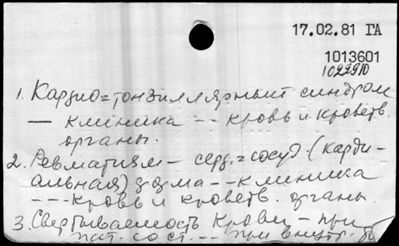 17.02.81 ГА
1013601
1022910
1. Кардио=тонзиллярный синдром
— клиника -- кровь и кроветв.
органы.
2. Ревматизм – серд.=сосуд (карди-
альная) форма -- клиника
--- кровь и кроветв. органы.
3. Свертываемость крови – при
пат. сост. -- при внутр. б